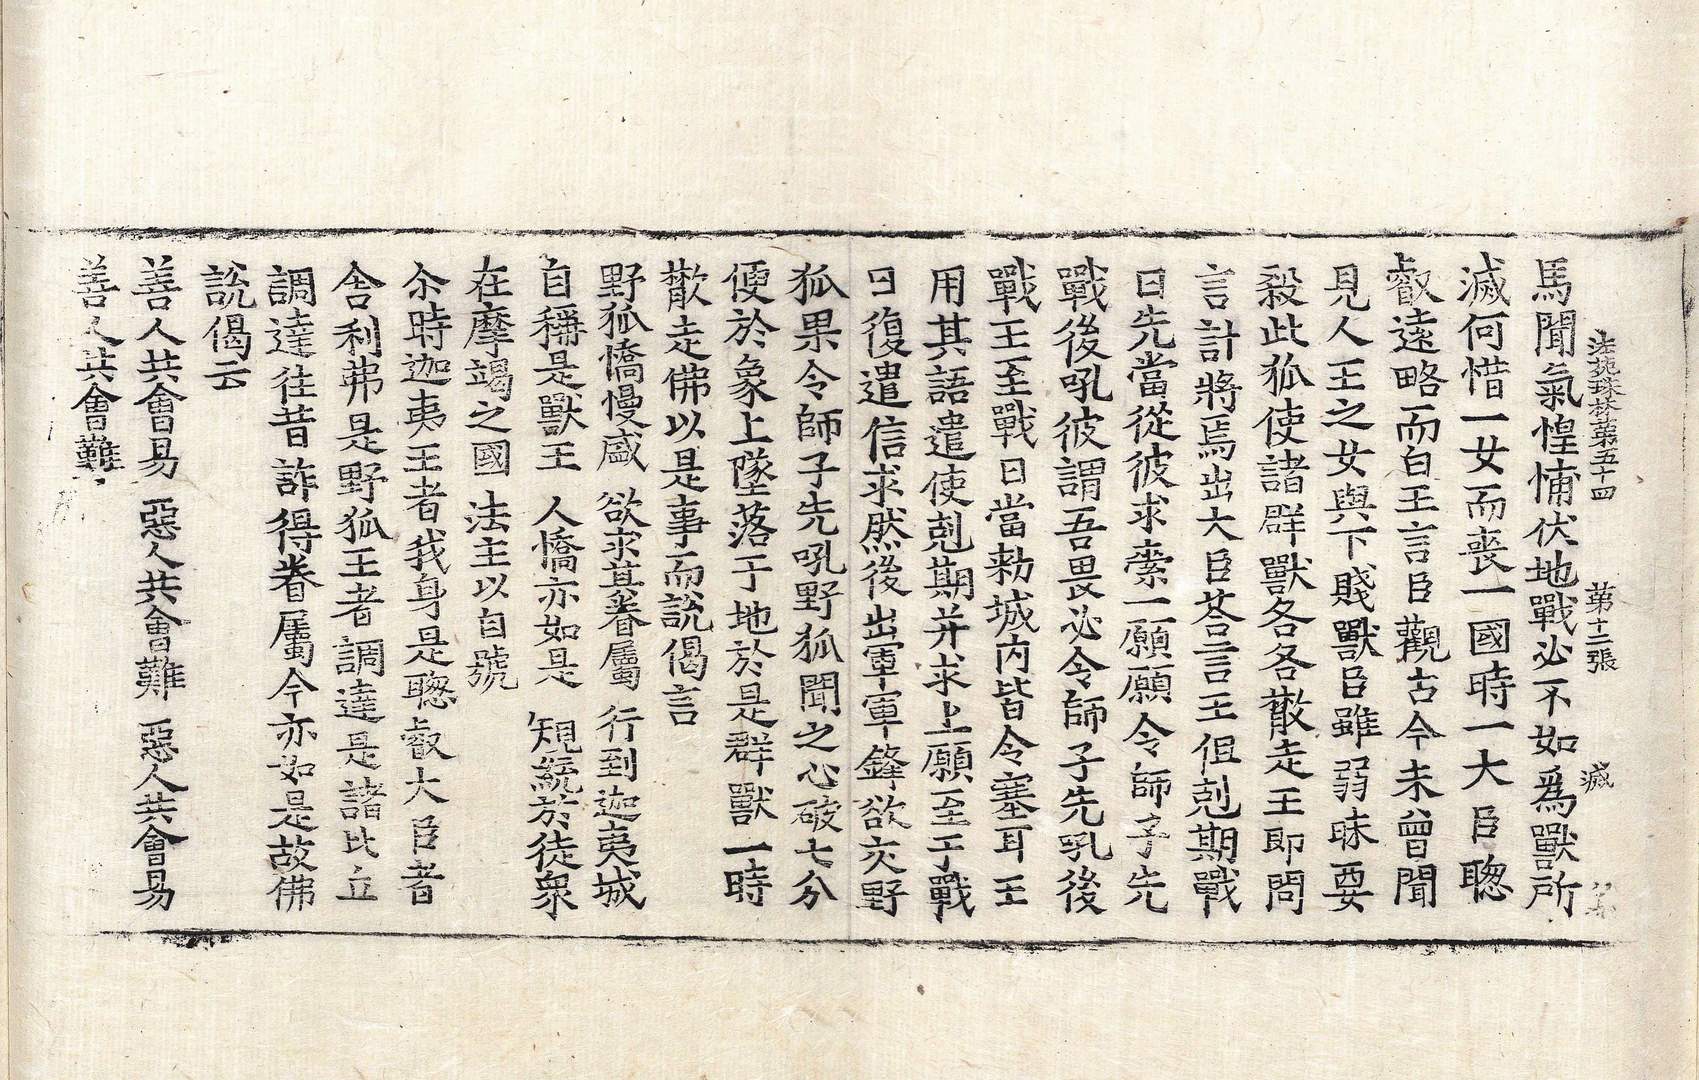 法苑珠林第五十四 第十二張 滅
馬聞氣惶怖伏地戰必不如爲獸所
滅何惜一女而喪一國時一大臣聦
叡遠略而白王言臣觀古今未曾聞
見人王之女與下賤獸臣雖弱昧要
殺此狐使諸群獸各各散走王即問
言計將焉出大臣荅言王但剋期戰
日先當從彼求索一願願令師子先
戰後吼彼謂吾畏必令師子先吼後
戰王至戰日當勑城内皆令塞耳王
用其語遣使剋期并求上願至于戰
日復遣信求然後出軍軍鋒欲交野
狐果令師子先吼野狐聞之心破七分
便於象上墜落于地於是群獸一時
散走佛以是事而說偈言
野狐憍慢盛 欲求其眷屬 行到迦夷城
自稱是獸王 人憍亦如是 現統於徒衆
在摩竭之國 法主以自號
尒時迦夷王者我身是聦叡大臣者
舍利弗是野狐王者調達是諸比丘
調達往昔詐得眷屬今亦如是故佛
說偈云
善人共會易 惡人共會難 惡人共會易
善人共會難